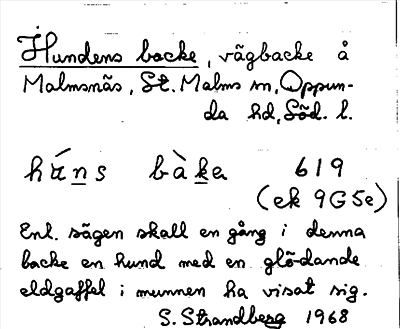 Hundens backe, vägbacke å
Malmsnäs, St. Malms sn, Oppun-
da hd, Söd. l.
hú̱ṉs bàḵa 619
(ek 9G5e)
Enl. sägen skall en gång i denna
backe en hund med en glödande
eldgaffel i munnen ha visat sig.
S. Strandberg 1968